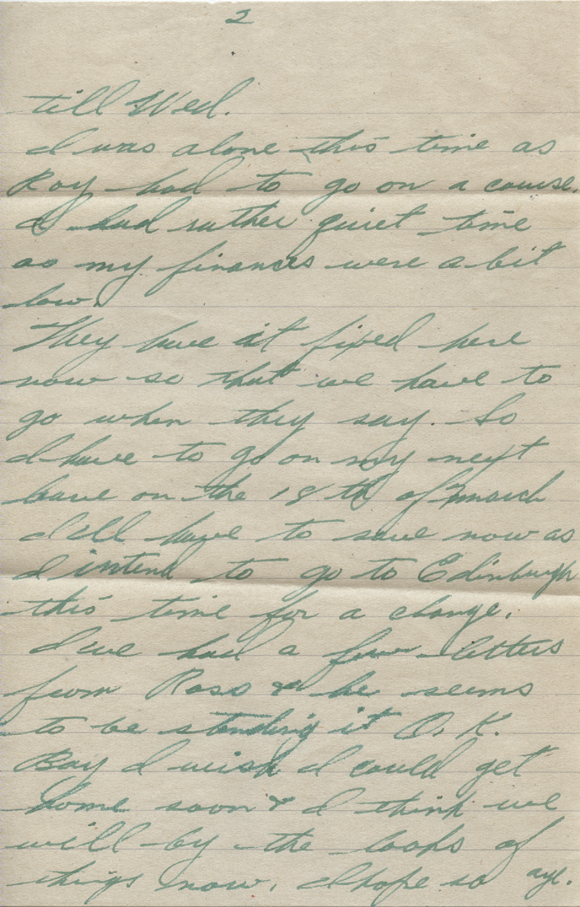 2
till Wed.
I was alone this time as
Roy had to go on a course.
I had rather quiet time
as my finances were a bit
low.
They have it fixed here
now so that we have to
go when they say. So
I have to go on my next
leave on the 18 th of march
I'll have to save now as
I intend to go to Edinburgh
this time for a change.
I've had a few letters
from Ross & he seems
to be standing it O.K.
Boy I wish I could get
home soon & I think we
will by the looks of
things now. I hope so aye.